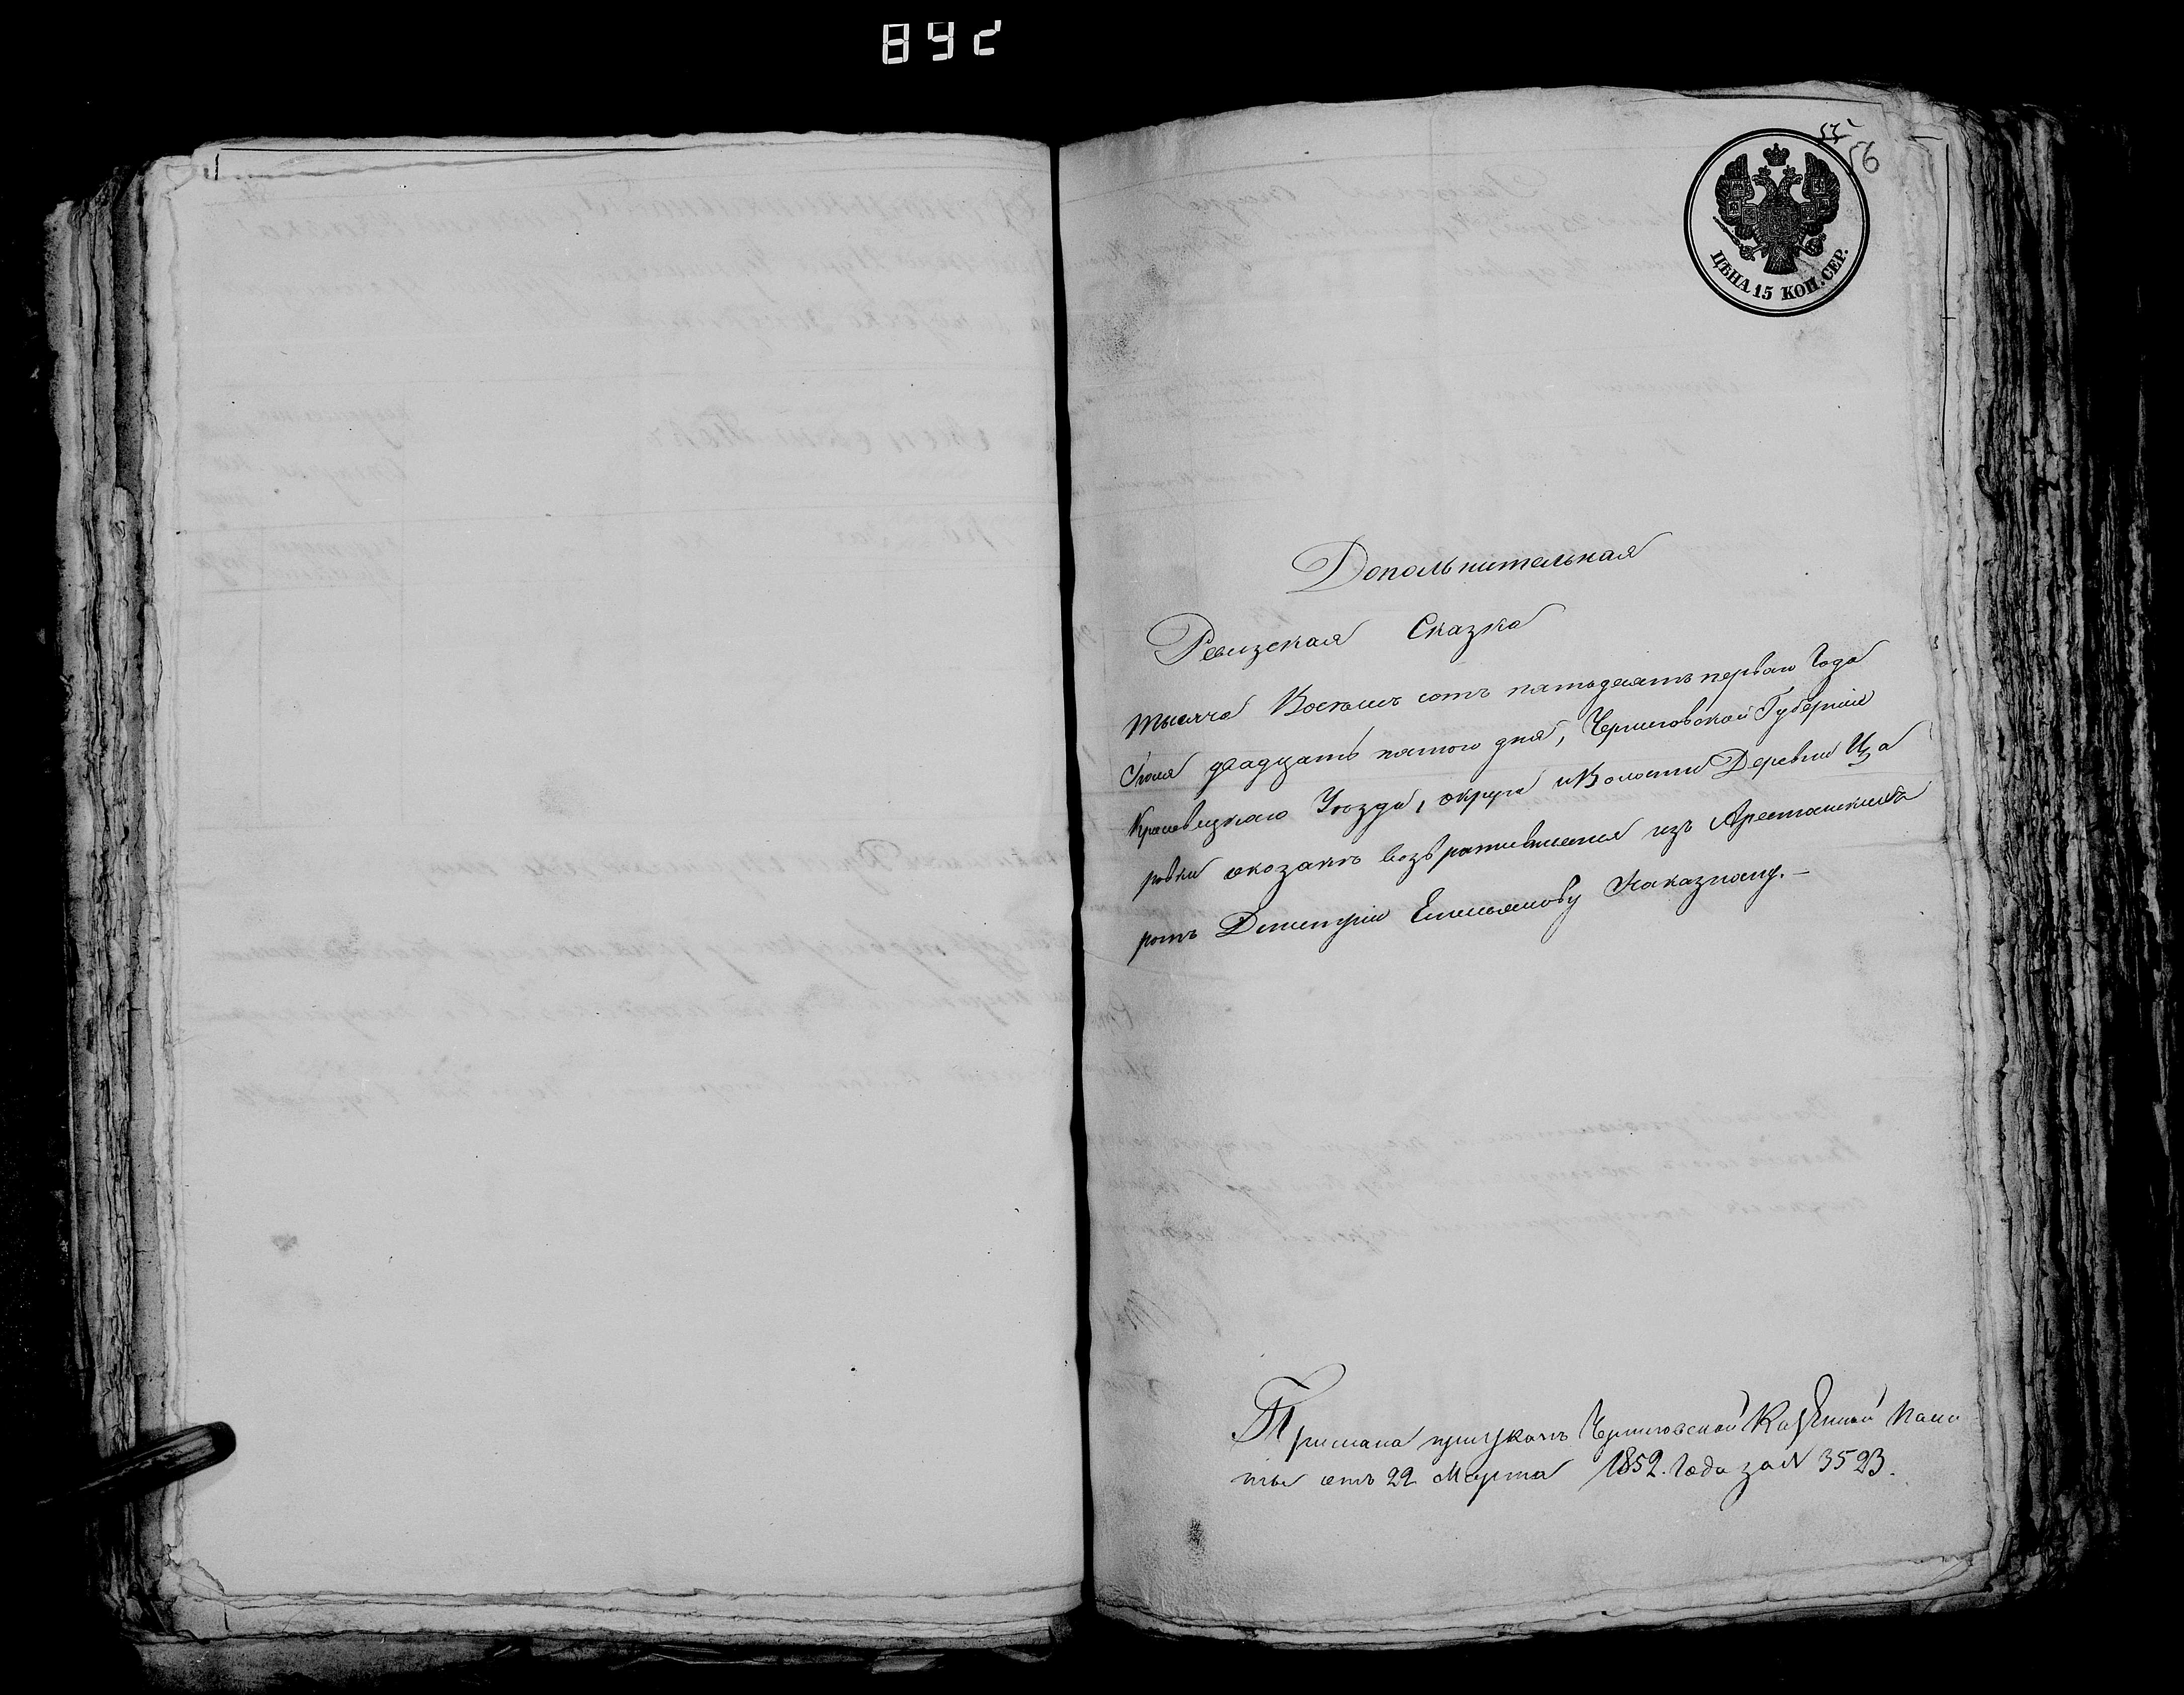 892
56
ЦѢНА 15 КОП. СЕР.
Дополнительная
Ревизская Сказка
тысяча Восемь сотъ пятьдесятъ перваго Года
Іюля двадцать пятого дня, Черниговской Губерніи
Кролевецкаго Уѣзда, округа и Волости Деревни Ца
ровки оказанъ возвратившемся изъ Арестанскихъ
ротъ Дмитріи Емельянову Наказному.-
Прислана при указѣ Черниговской Казенной Пала
ты отъ 22 Марта 1852. Года за N 3523.